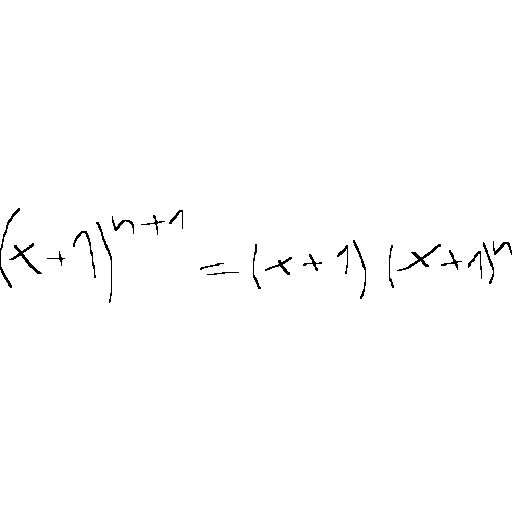 (x+1)^{n+1} = (x+1)(x+1)^n